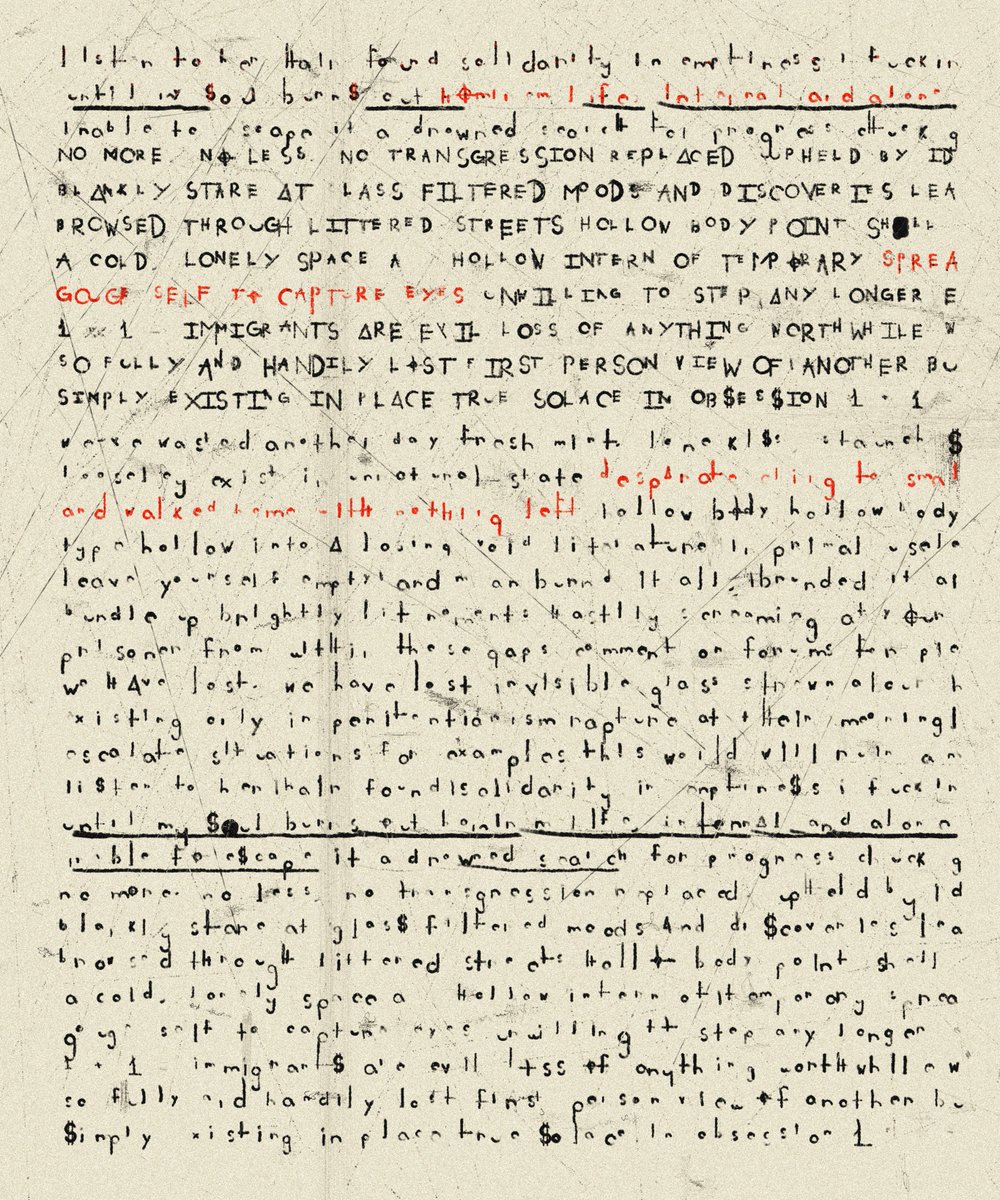 listen to her hair found solidarity in emptiness i fuckin
until my $oul burn$ out life internal and alone
unable to escape it a drowned search for progress chuck g
NO MORE. NO LESS. NO TRANSGRESSION REPLACED UPHELD BY ID
BLANKLY STARE AT LASS FILTERED MOODS AND DISCOVERIES LEA
BROWSED THROUGH LITTERED STREETS HOLLOW BODY POINT SHELL
A COLD. LONELY SPACE A HOLLOW INTERN OF TEMPORARY SPREA
GOUGE SELF TO CAPTURE EYES UNWILLING TO STEP ANY LONGER E
1 x 1 - IMMIGRANTS ARE EVIL LOSS OF ANYTHING WORTHWHILE W
SO FULLY AND HANDILY LOST FIRST PERSON VIEW OF ANOTHER BU
SIMPLY EXISTING IN PLACE TRUE SOLACE IN OB$ES$ION 1 + 1
we've wasted another day fresh mint $
loosely exist in unnatural state desparate cling to smal
and walked home with nothing left hollow body hollow body
type hollow into a losing void literature in primal usele
leave yourself empty and burned it all branded it al
bundle up brightly lit moments hastily screaming at your
prisoner from within these gaps comment on forums for ple
we have lost. we have lost invisible glass strewn h
existing only in penitentiarism rapture at their meaningl
escalate situations for examples this world will ruin an
li$ten to her hair found solidarity in emptine$s i fuckin
until my $oul burns out internal and alone
unable to e$cape it a drowned search for progress chuck g
no more. no less. no transgression replaced upheld by id
blankly stare at glas$ filtered moods and di$coveries lea
browsed through littered streets hollow body point shell
a cold. lonely space a hollow intern of temporary sprea
gouge self to capture eyes unwilling to step any longer
1 + 1 - immigrant$ are evil loss of anything worthwhile w
so fully and handily lost first person view of another bu
$imply existing in place true $olace in obsession 1